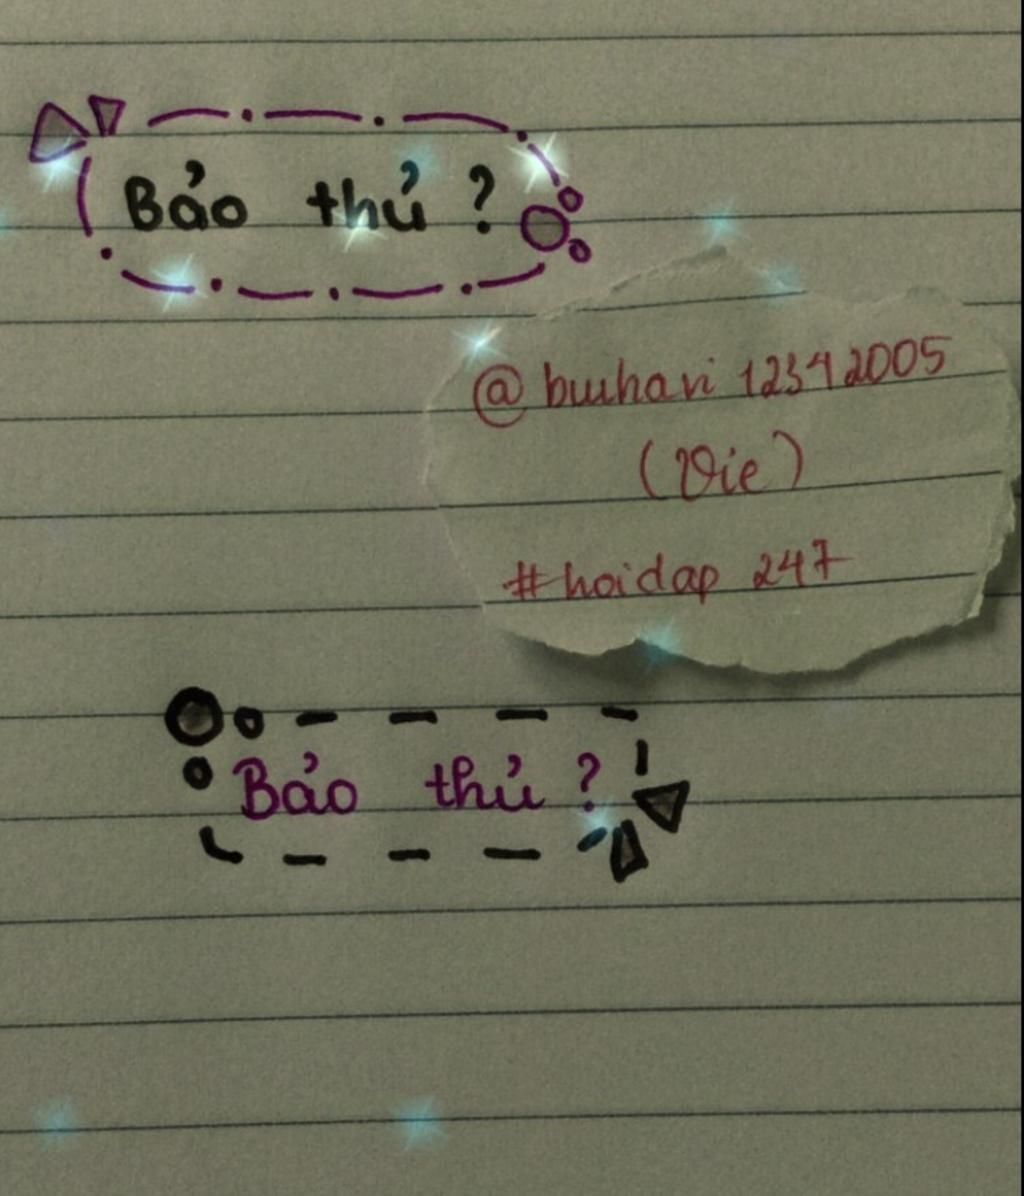 Bảo thủ ?
@buihavi 12342005
(Vie)
#hoidap 247
Bảo thủ ?